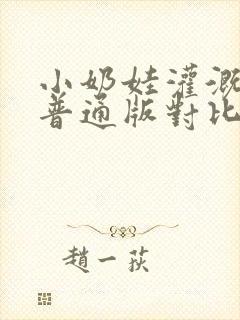 小奶娃灌溉
普通版對比
趙一荻